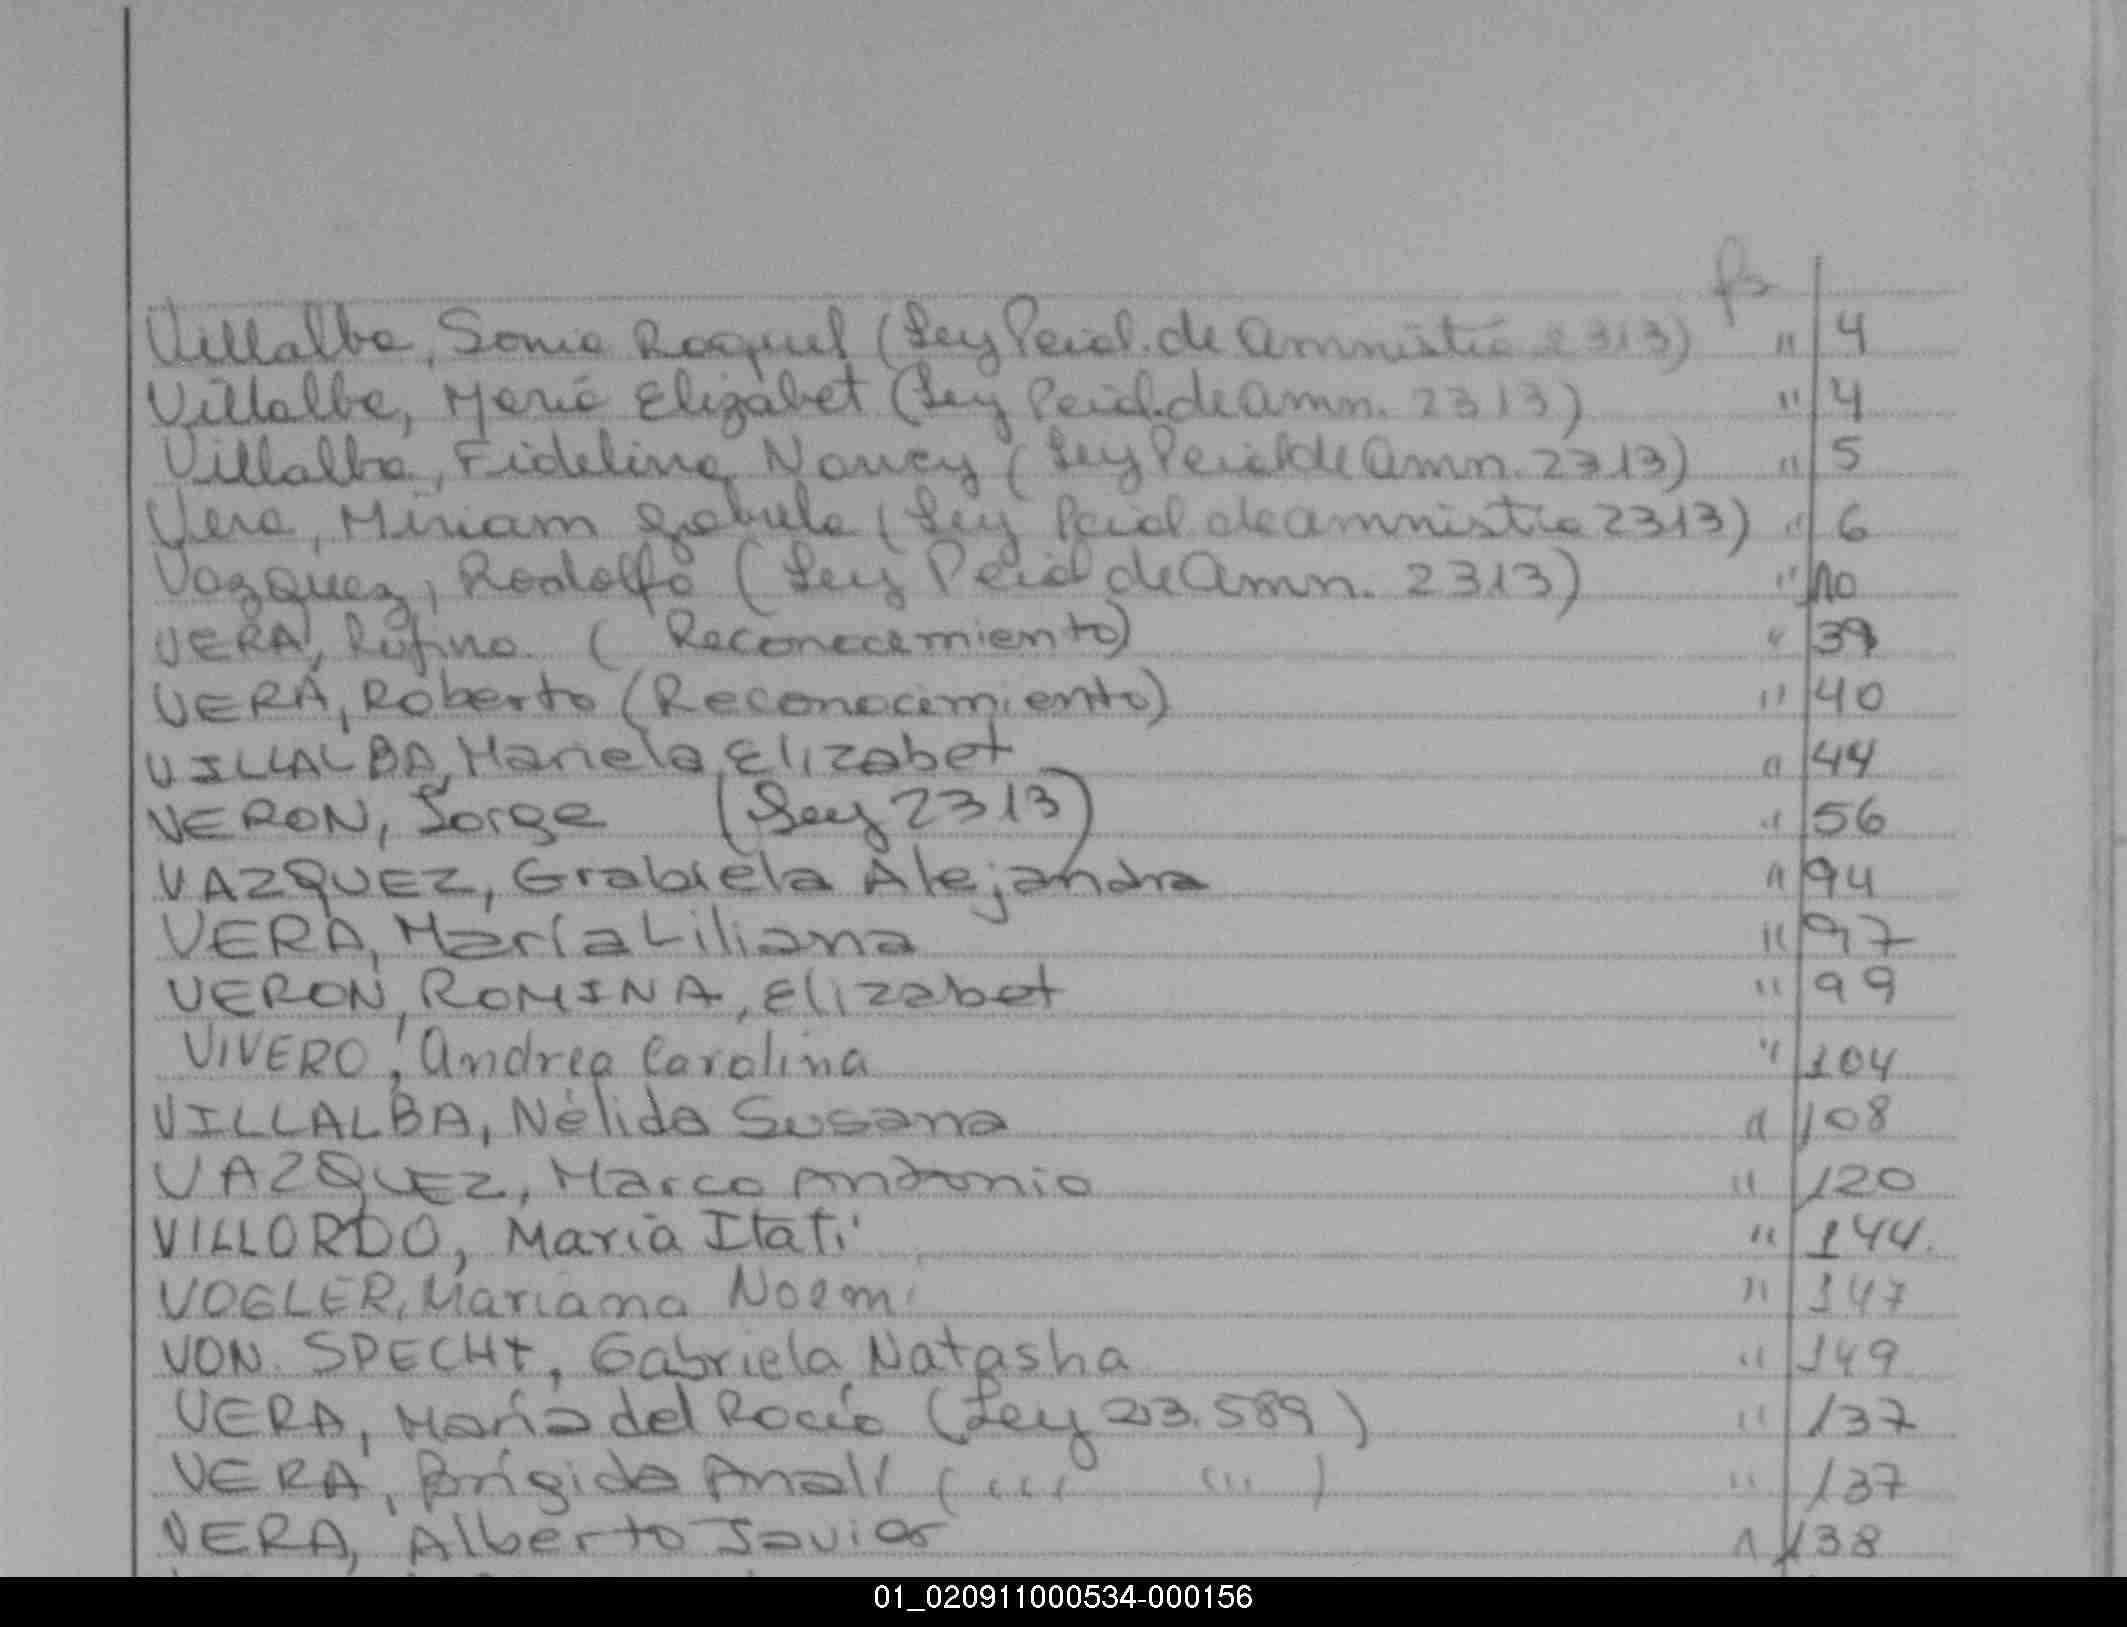 fs
Villalba, Sonia Raquel (Ley Pcial. de Amnistía 2313) " 4
Villalba, María Elizabet (Ley Pcial. de Amn. 2313) " 4
Villalba, Fidelina Nancy (Ley Pcial de Amn. 2313) " 5
Vera, Miriam Grabiela (Ley Pcial de amnistia 2313) " 6
Vazquez, Rodolfo (Ley Pcial de Amn. 2313) " 10
VERA, Rufino. (Reconocemiento) " 39
VERA, Roberto (Reconocimiento) " 40
VILLALBA, Mariela Elizabet " 44
VERON, Jorge (Ley 2313) " 56
VAZQUEZ, Grabiela Alejandra " 94
VERA, María Liliana " 97
VERON, ROMINA, Elizabet " 99
VIVERO, Andrea Carolina " 104
VILLALBA, Nélida Susana " 108
VAZQUEZ, Marco Antonio " 120
VILLORDO, María Itatí " 144.
VOGLER, Mariana Noemi " 147
VON. SPECHt, Gabriela Natasha " 149
VERA, María del Rocío (Ley 23.589) " 137
VERA, Brígida Analí ( " " ) " 137
VERA, Alberto Javier " 138
01_020911000534-000156